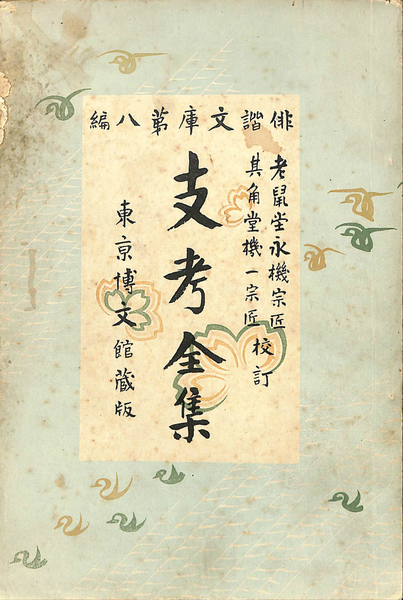 俳諧文庫第八編
老鼠堂永機宗匠
其角堂機一宗匠
校訂
支考全集
東京博文館蔵版